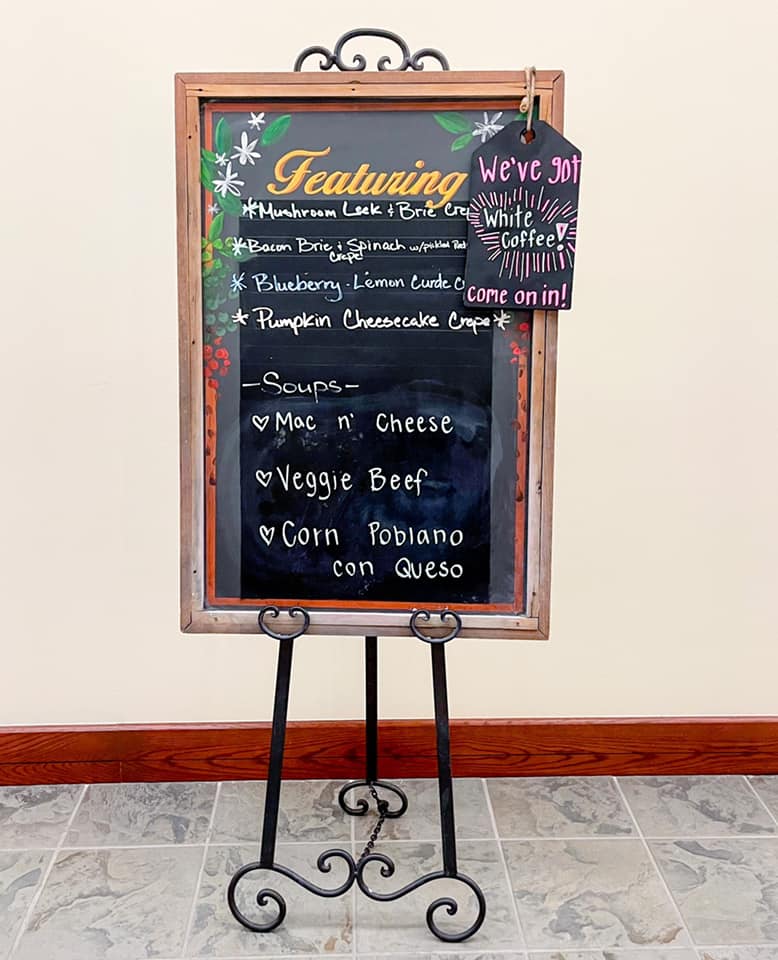 Featuring
*Mushroom Leek & Brie
*Bacon Brie & Spinach w/pickled Red
Crepe
*Blueberry-Lemon Curde
*Pumpkin Cheesecake Crepe*
-Soups-
♡Mac n' Cheese
♡Veggie Beef
♡Corn Poblano
con Queso
We've got
White
Coffee!
come on in!